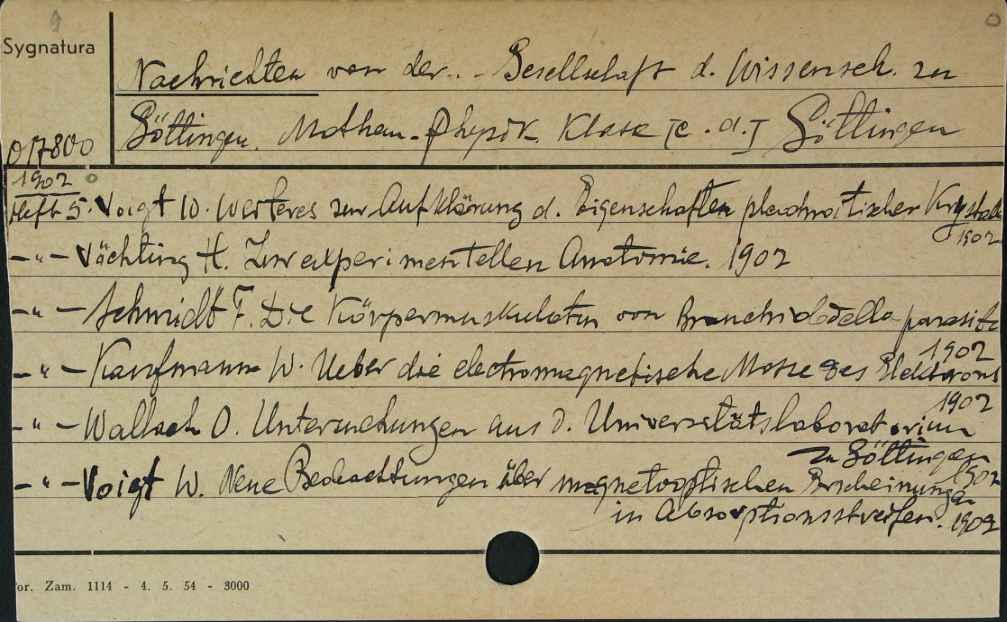 Sygnatura
Nachrichten von der.. - Gesellschaft d. Wissensch. zu
Göttingen. Mathem-Physik. Klasse
Göttingen
0/7800
1902
Heft 5. Voigt W. Weiteres zur Aufklärung d. Eigenschaften pleochroitischer Krystalle
1902
-"- Vöchting H. Zur experimentellen Anatomie. 1902
-"- Schmidt F. Die Körpermuskulatur von Branchiobdella parasita
1902
-"- Kaufmann W. Ueber die electromagnetische Masse des Elektrons
1902
-"- Wallach O. Untersuchungen aus d. Universitätslaboratorium
zu Göttingen
1902
-"- Voigt W. Neue Beobachtungen über magnetooptischen Erscheinungen
in Absorptionsstreifen. 1902
or. Zam. 1114 - 4. 5. 54 - 3000